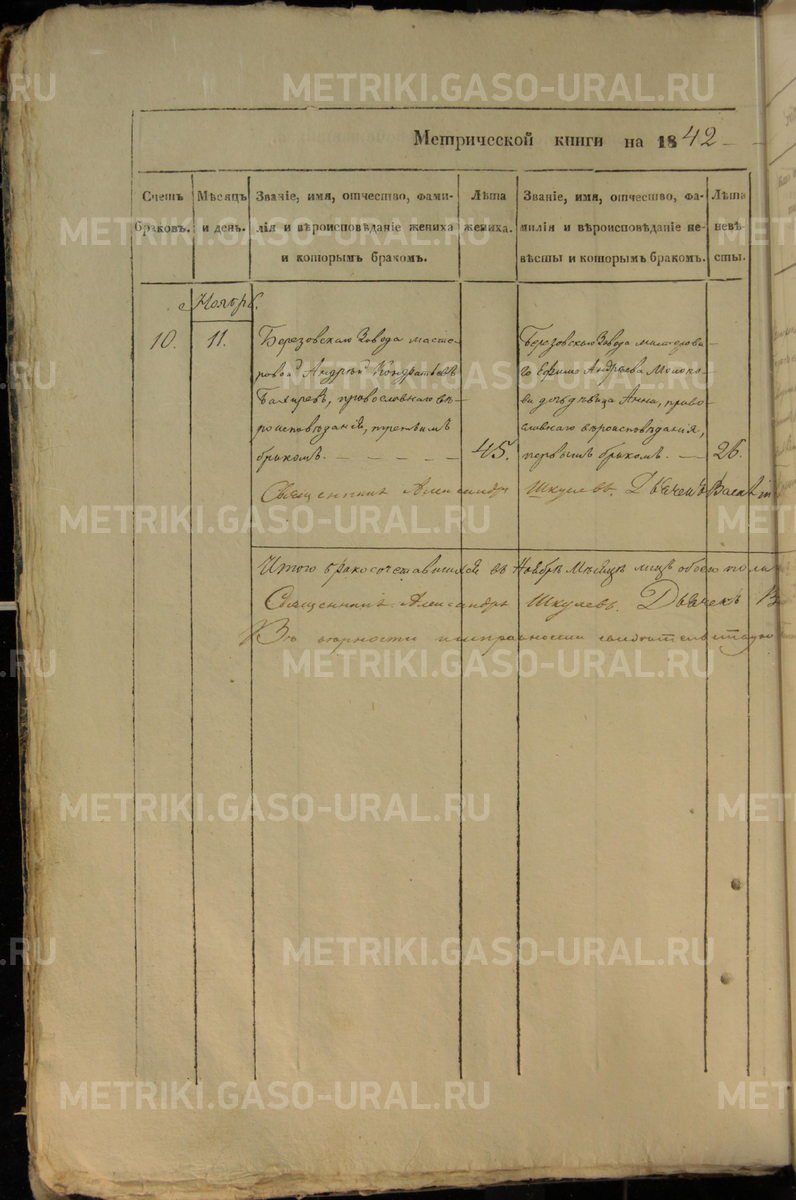 METRIKI.GASO-URAL.RU
Метрической книги на 1842
Счетъ браковъ.
Мѣсяцъ и день.
Званіе, имя, отчество, фами-
лія и вѣроисповѣданіе жениха
и которымъ бракомъ.
Лѣта жениха.
Званіе, имя, отчество, фа-
милія и вѣроисповѣданіе не-
вѣсты и которымъ бракомъ.
Лѣта невѣ-
сты.
Ноябрь.
10.
11.
Березовскаго Завода масте-
ровой Андрей Кондратьевъ
православнаго вѣ-
роисповѣданія, третьимъ
бракомъ.
45.
Березовскаго Завода мастерова-
го Ефима Андреева
дочь дѣвица Анна, право-
славнаго вѣроисповѣданія,
первымъ бракомъ.
26.
Священникъ Александръ Шкулевъ. Дьячекъ
Итого бракосочетавшихся въ Ноябрѣ Мѣсяцѣ лицъ обоего пола
Священникъ Александръ Шкулевъ. Дьячекъ
Въ вѣрности